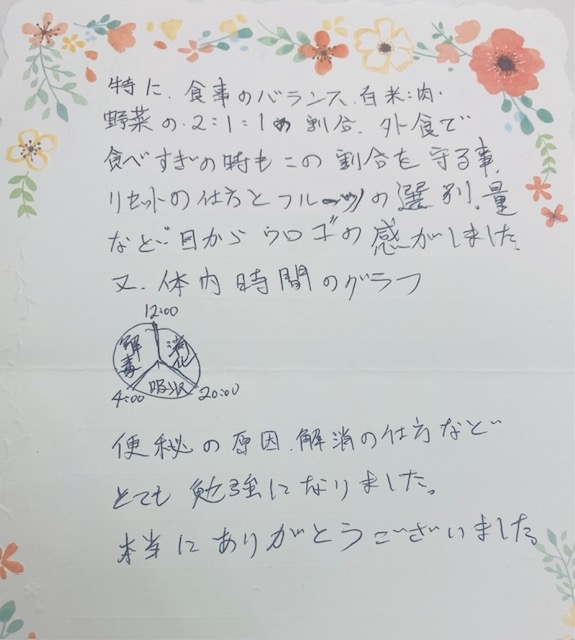 特に、食事のバランス、白米:肉・
野菜の・2:1:1の割合、外食で
食べすぎの時もこの割合を守る事、
リセットの仕方とフルーツの選別、量
などど目からウロコの感がしました。
又、体内時間のグラフ
12:00
解毒 消化
吸収
4:00 20:00
便秘の原因、解消の仕方など
とても勉強になりました。
本当にありがとうございました。